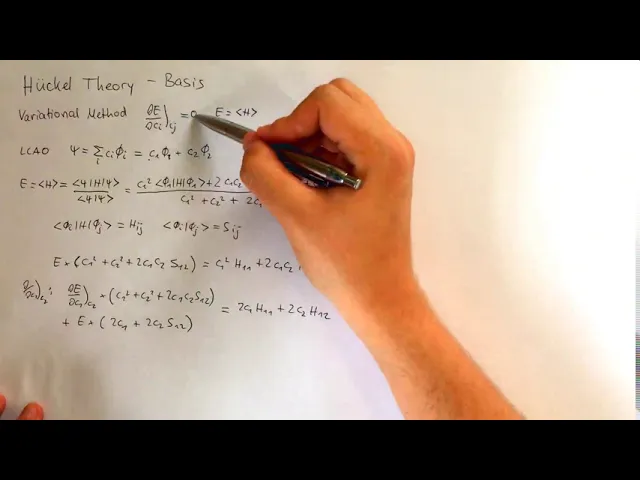 Hückel Theory - Basis
Variational Method ∂E/∂ci)ij = 0 E = <H>
LCAO Ψ = Σi ciΦi = c1Φ1 + c2Φ2
E = <H> = <Ψ|H|Ψ>/<Ψ|Ψ> = c1² <Φ1|H|Φ1> + 2 c1c2 / c1² + c2² + 2c1
<Φi|H|Φj> = Hij <Φi|Φj> = Sij
E * (c1² + c2² + 2c1c2 S12) = c1² H11 + 2c1c2
∂/∂c1)c2 : ∂E/∂c1)c2 * (c1² + c2² + 2c1c2S12) = 2c1H11 + 2c2H12
+ E * (2c1 + 2c2S12)